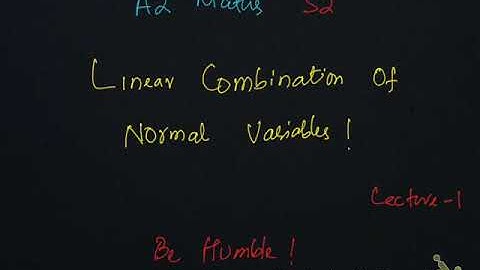 A2 Maths S2
Linear Combination Of
Normal Variables!
Lecture-1
Be Humble!